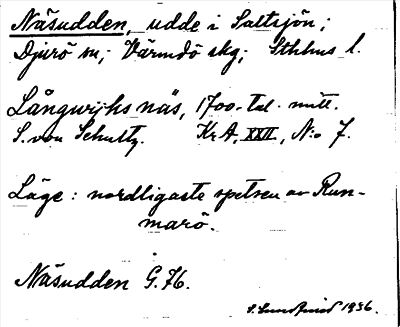 Näsudden, udde i Saltsjön;
Djurö sn; Värmdö skg; Sthlms l.
Långwijks näs, 1700-tal. mitt.
S. von Schultz. Kr A, XXII, N:o 7.
Läge: nordligaste spetsen av Run-
marö.
Näsudden G. 76.
1936.